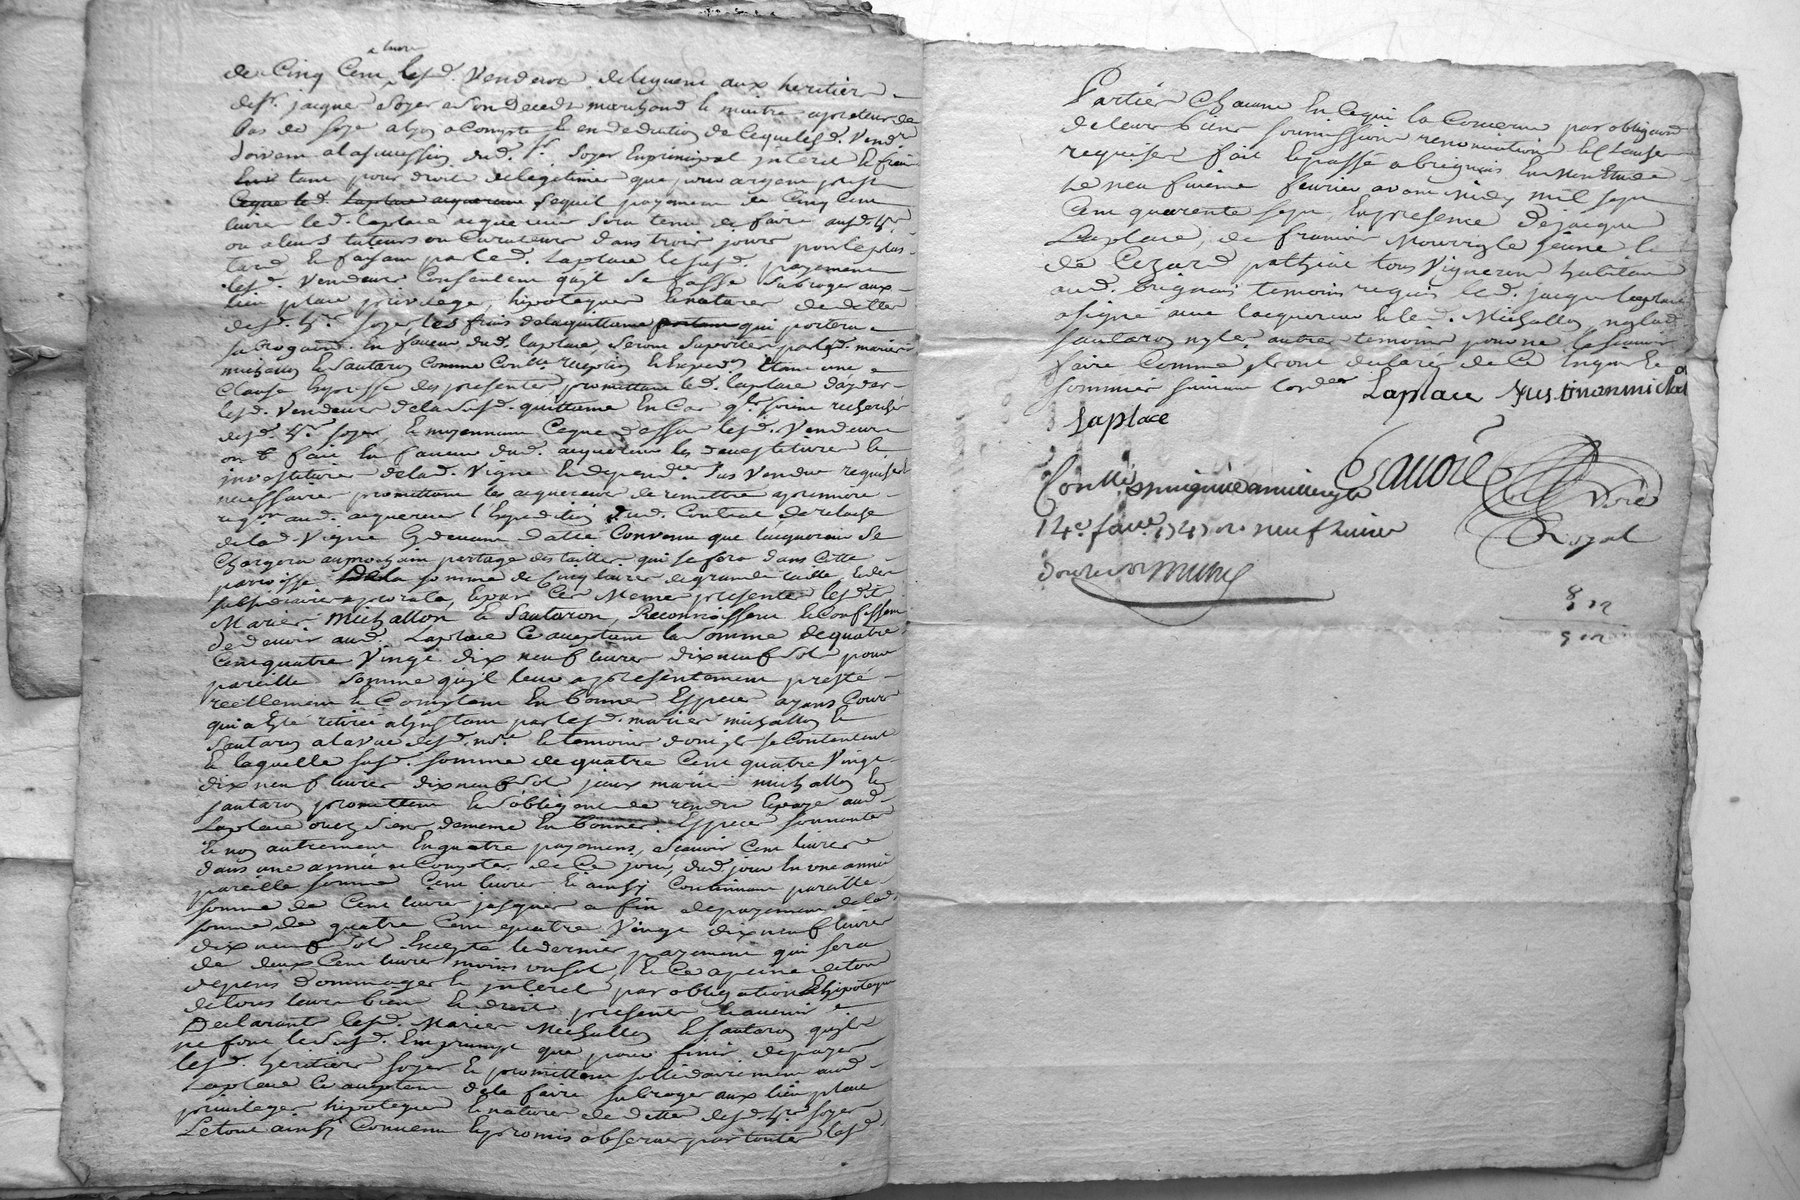 livres
de Cinq Cent lesd. Vendeurs deleguent aux heritiers
desr. jacques soyer a son deceds marchand et maitre apreteur de
bas de soye a lyon acompte et en deduction de ce que lesd. Vendrs
doivent a la succession dud. sr. soyer en principal interet et frais
tant pour droits de legitimes que pour argent presté
Ceque led. Laplace acquereur sequel payement de Cinq Cent
livres led. laplace acquereur sera tenu de faire ausd. hrs
ou a leurs tuteurs ou Curateurs dans trois jours pour le plus
tard et faisant par led. Laplace lesusd. payement
lesd. Vendeurs Consentent qu'il se fasse subroger aux
lieu place privilege, hipoteques et nature de dettes
desd. hrs soyer, les frais de la quittance qui portera
subrogaon. en faveur dud. laplace, seront suportés par lesd. mariés
michallon et santaron comme
Clause Expresse des presentes promettant led. laplace
lesd. Vendeurs de lasusd. quittance En Cas qls. soient recherchés
desd. hrs soyer, et moyennant Ceque dessus lesd. Vendeurs
ont fait en faveur dud. acquereur les devestiture et
investiture delad. Vigne et dependces. sus vendue requises
necessaires promettant les acquereurs de remettre a premiere
reqon. aud. acquereur l'Expedition dud. Contrat de relache
delad. Vigne Convenu que lacquereur se
Chargera au prochain partage des tailles qui se fera dans Cette
parroisse de la somme de Cinq livres de grande taille, et des
subsidiaires a prorata, et par Ces Memes presentes lesdits
Mariés Michallon et Santaron, Reconnoissent et Confessent
de devoir aud. Laplace Ce aceptant la somme de quatre
Cent quatre Vingt dix neuf livres dix neuf sols pour
pareille somme qu'il leur a presentement presté
reellement et Comptant En bonnes Especes ayans Cours
qui a Esté retirée a l'instant par lesd. mariés michallon et
santaron a la vue desd. nre. et temoins dont ils se Contentent
Et laquelle susd. somme de quatre Cent quatre Vingt
dix neuf livres dix neuf sols iceux mariés michallon et
santaron promettent et s'obligent de rendre et payer aud.
Laplace ou es siens de meme En bonnes Especes sonnantes
et non autrement En quatre payemens, scavoir Cent livres
dans une année a Compter de Ce jour, dud. jour en une année
pareille somme Cent livres et ainsy Continuant pareille
somme de Cent livres jusques a fin de payement de lad.
somme de quatre Cent quatre Vingt dix neuf livres
dix neuf sols Excepté le dernier payement qui sera
de deux Cent livres moins un sol, et Ce a peine de tous
depens dommages et interets par obligation et hipoteque
de tous leurs biens et droits presents et avenir
Declarants lesd. Mariés Michallon et santaron qu'ils
ne font lesusd. Emprumpt que pour finir de payer
lesd. heritiers soyer et promettent sollidairement aud.
Laplace Ce aceptant de le faire subroger aux lieu place
privileges hipoteques et natures de dettes desd. hrs soyer
Le tout ainsy Convenu et promis observer par toutes lesd.
Parties Chacune En Cequi la Concerne par obligaon
de leurs biens soumission renonciation et Clauses
requises fait et passé a brignais En Mon Etude
le neufvieme fevrier avant midy mil sept
Cent quarente sept, En presence de jacques
Laplace, de francois jeune et
de Cezard tous Vignerons habitans
aud. brignais temoins requis led. jacques laplace
a signé avec lacquereur et led. Michallon, non lad.
santaron ny les autres temoins pour ne le scavoir
faire Comme ils ont declaré de Ce Enquis et
sommés suivant lordce
Laplace
laplace
Nore
Royal
Conllé
14e fevr. 1747 neuf livres
douze